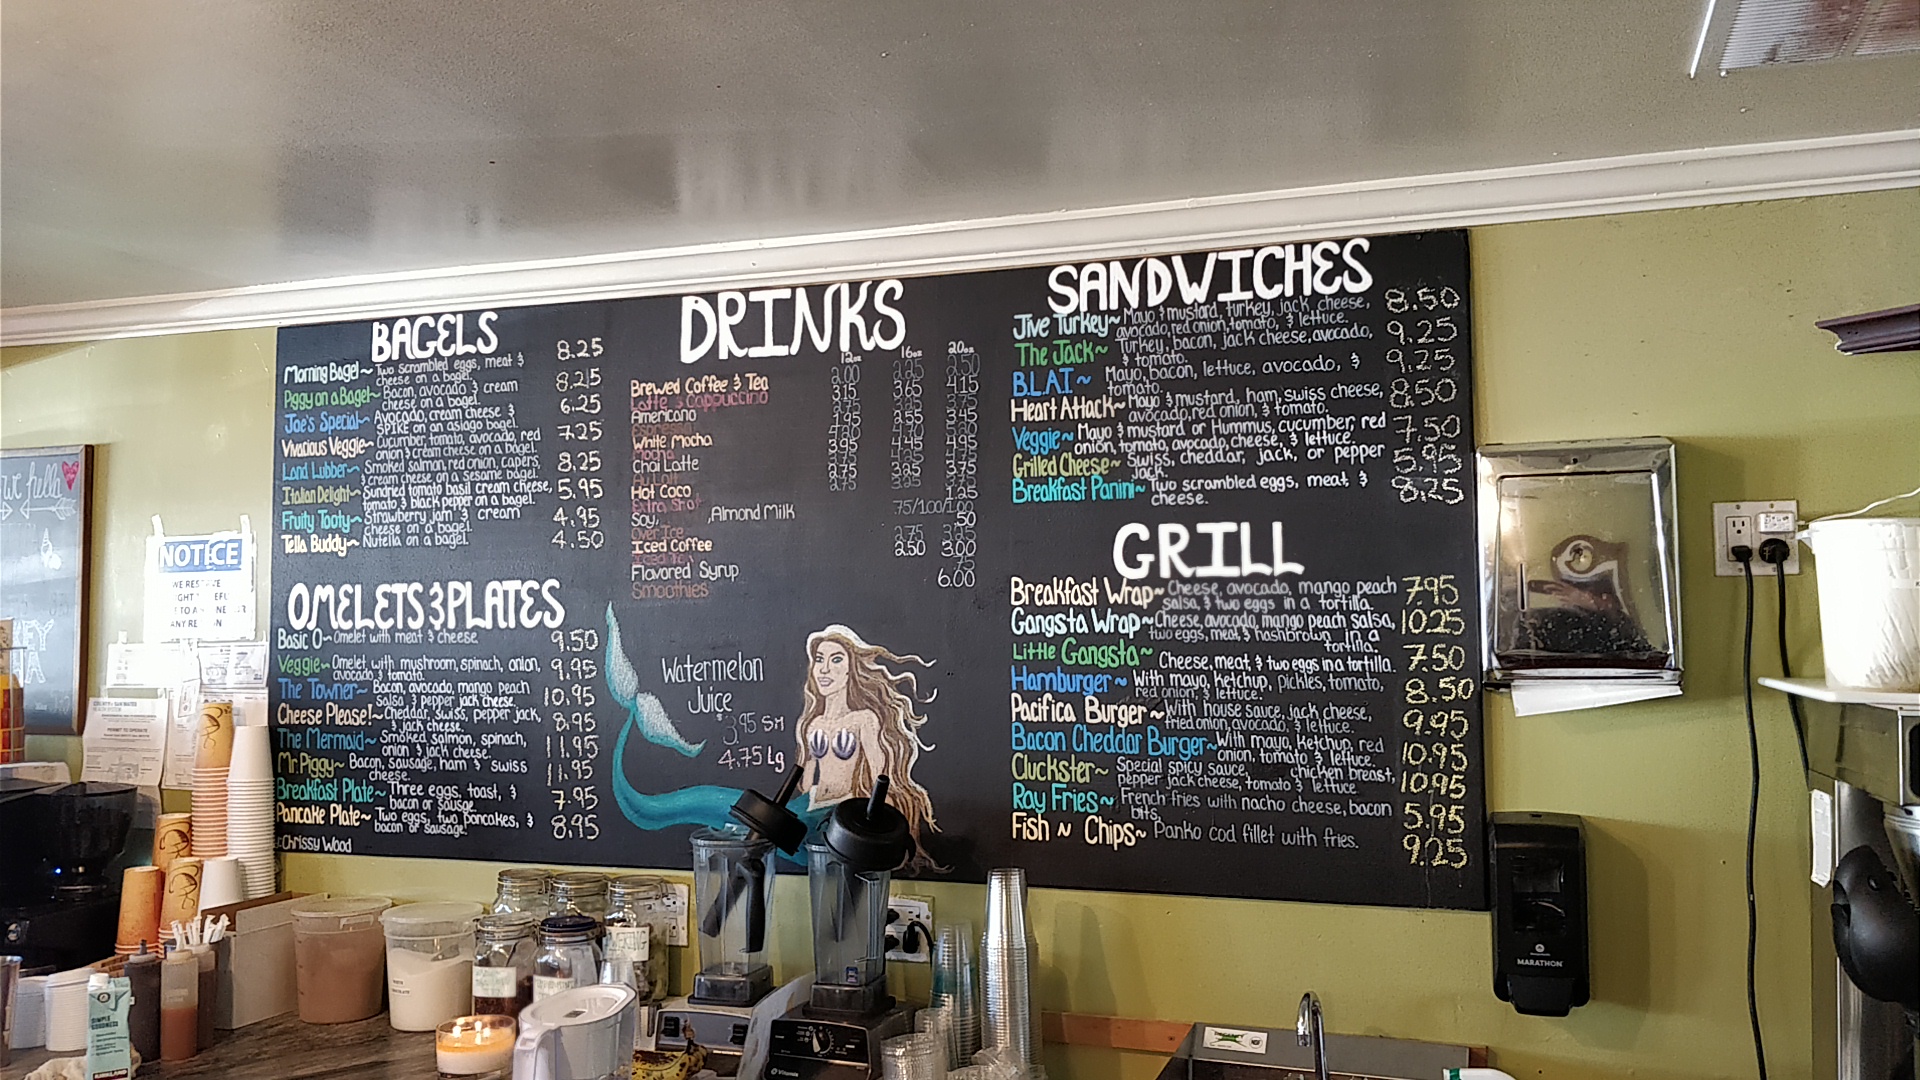 BAGELS
Morning Bagel~ Two scrambled eggs, meat & 8.25
cheese on a bagel.
Piggy on a Bagel~ Bacon, avocado, & cream 8.25
cheese on a bagel.
Joe's Special~ Avocado, cream cheese & 6.25
SPIKE on an asiago bagel.
Vivacious Veggie~ Cucumber, tomato, avocado, red 7.25
onion & cream cheese on a bagel.
Land Lubber~ Smoked salmon, red onion, capers, 8.25
& cream cheese on a Sesame bagel.
Italian Delight~ Sundried tomato basil cream cheese, 5.95
tomato & black pepper on a bagel.
Fruity Tooty~ Strawberry jam & cream 4.95
cheese on a bagel.
Tella Buddy~ Nutella on a bagel. 4.50
OMELETS & PLATES
Basic O~ Omelet with meat & cheese 9.50
Veggie~ Omelet with mushroom, spinach, onion, 9.95
avocado & tomato.
The Towner~ Bacon, avocado, mango peach 10.95
salsa & pepper jack cheese.
Cheese Please!~ Cheddar, swiss, pepper jack, 8.95
& jack cheese.
The Mermaid~ Smoked salmon, spinach, 11.95
onion & jack cheese.
Mr. Piggy~ Bacon, sausage, ham & swiss 11.95
cheese.
Breakfast Plate~ Three eggs, toast, & 7.95
bacon or sausge.
Pancake Plate~ Two eggs, two pancakes, & 8.95
bacon or sausage.
:Chrissy Wood
DRINKS
12oz 16oz 20oz
Brewed Coffee & Tea
Latte & Cappuccino 3.15 3.65 4.15
Americano
Espresso
White Mocha
Mocha 3.95 4.45 4.95
Chai Latte
Au Lait
Hot Coco
Extra Shot 1.25
Soy, ,Almond Milk 75/100/1.00
Over Ice .50
Iced Coffee
2.50 3.00
Flavored Syrup .75
Smoothies 6.00
Watermelon
Juice
$3.95 SM
4.75 Lg
SANDWICHES
Jive Turkey~ Mayo & mustard, turkey, jack cheese, 8.50
avocado, red onion, tomato, & lettuce.
The Jack~ Turkey, bacon, jack cheese, avocado, 9.25
& tomato.
B.L.A.T~ Mayo, bacon, lettuce, avocado, & 9.25
tomato.
Heart Attack~ Mayo & mustard, ham, swiss cheese, 8.50
avocado, red onion, & tomato.
Veggie~ Mayo & mustard or Hummus, cucumber, red 7.50
onion, tomato, avocado, cheese, & lettuce.
Grilled Cheese~ Swiss, cheddar, jack, or pepper 5.95
jack.
Breakfast Panini~ Two scrambled eggs, meat & 8.25
cheese.
GRILL
Breakfast Wrap~ Cheese, avocado, mango peach 7.95
salsa, & two eggs in a tortilla.
Gangsta Wrap~ Cheese, avocado, mango peach salsa, 10.25
two eggs, meat, & hashbrown in a
tortilla.
Little Gangsta~ Cheese, meat, & two eggs in a tortilla. 7.50
Hamburger~ With mayo, ketchup, pickles, tomato, 8.50
red onion, & lettuce.
Pacifica Burger~ With house sauce, jack cheese, 9.95
fried onion, avocado, & lettuce.
Bacon Cheddar Burger~ With mayo, ketchup, red 10.95
onion, tomato & lettuce.
Cluckster~ Special spicy sauce, chicken breast, 10.95
pepper jack cheese, tomato & lettuce
Ray Fries~ French fries with nacho cheese, bacon 5.95
bits.
Fish ~ Chips~ Panko cod fillet with fries. 9.25
NOTICE
PERMIT TO OPERATE
MARATHON
KIRKLAND